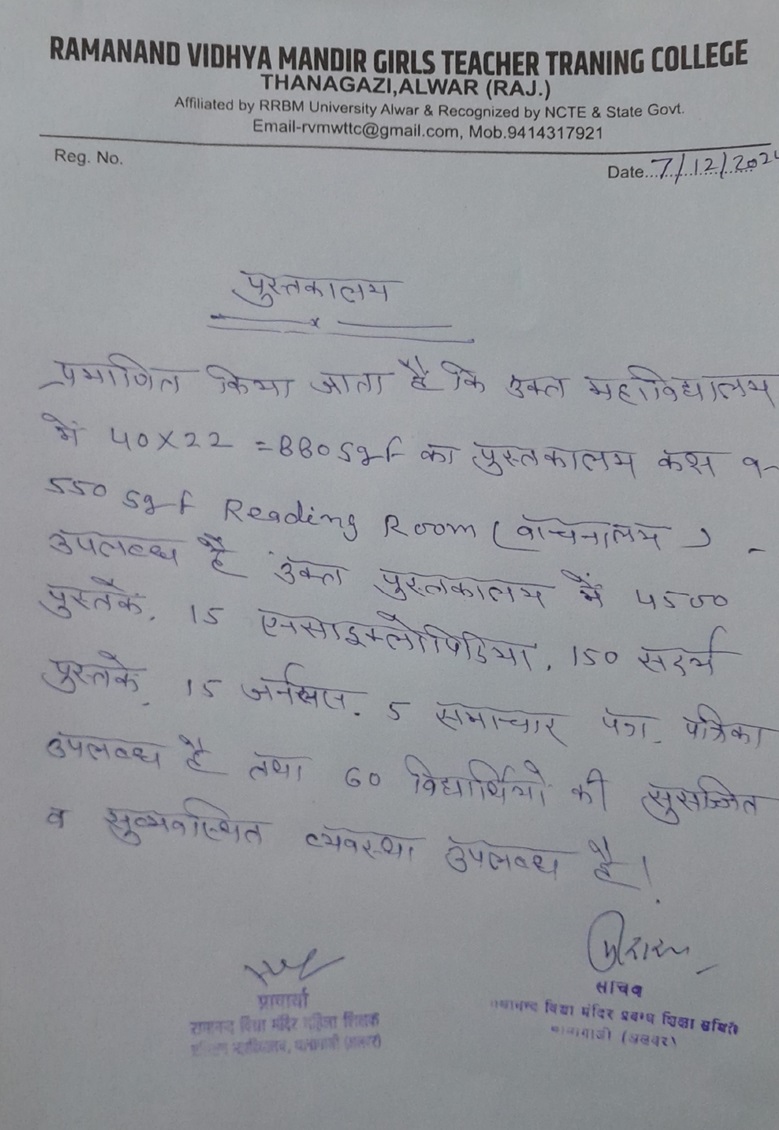 RAMANAND VIDHYA MANDIR GIRLS TEACHER TRANING COLLEGE
THANAGAZI,ALWAR (RAJ.)
Affiliated by RRBM University Alwar & Recognized by NCTE & State Govt.
Email-rvmwttc@gmail.com, Mob.9414317921
Reg. No.
Date...7/12/2024
पुस्तकालय
प्रमाणित किया जाता है कि उक्त महाविद्यालय
में 40X22 =880 sqf का पुस्तकालय कक्ष व
550 sqf Reading Room (वाचनालय) -
उपलब्ध है उक्त पुस्तकालय में 4500
पुस्तकें, 15 एनसाइक्लोपिडिया, 150 सदर्भ
पुस्तकें, 15 जर्नल्स, 5 समाचार पत्र, पत्रिका
उपलब्ध है तथा 60 विद्यार्थियों की सुसज्जित
व सुव्यवस्थित व्यवस्था उपलब्ध है।
प्राचार्या
रामानन्द विद्या मंदिर महिला शिक्षक
सचिव
रामानन्द विद्या मंदिर प्रबन्ध शिक्षा समिति
थानागाजी (अलवर)